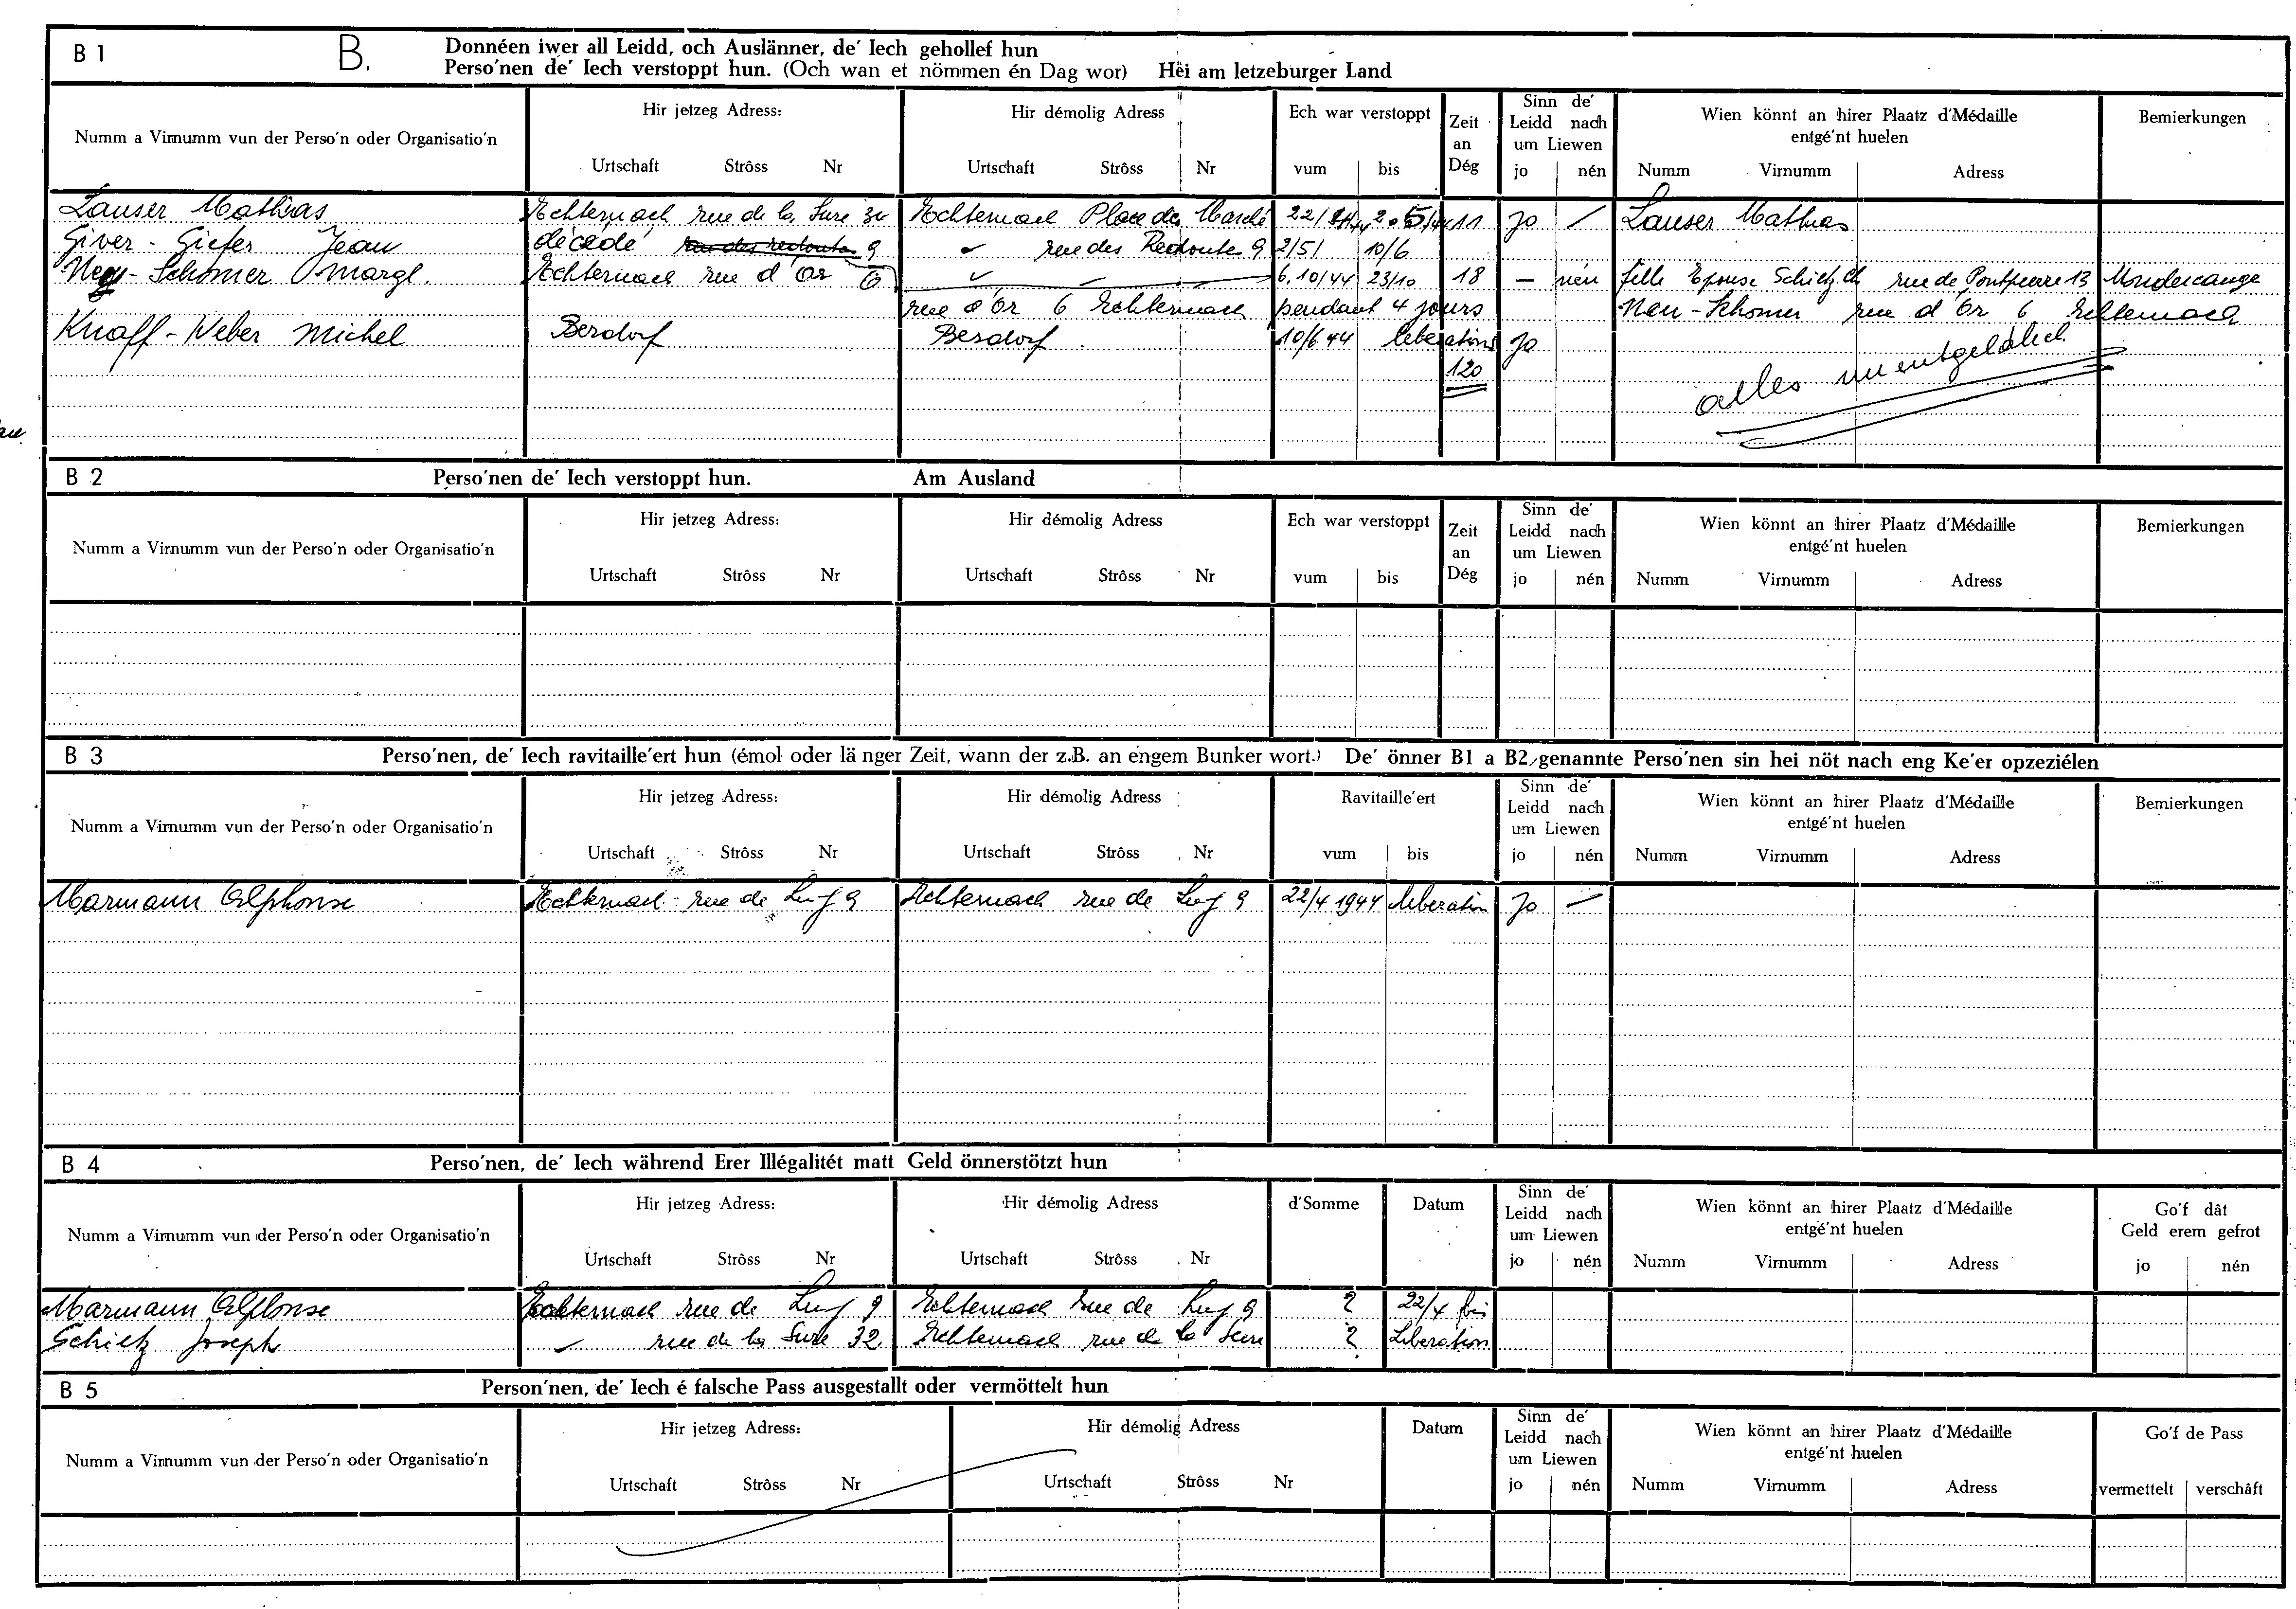 B 1 B. Donnéen iwer all Leidd, och Auslänner, de' Iech gehollef hun
Perso'nen de' Iech verstoppt hun. (Och wan et nömmen én Dag wor) Hëi am letzeburger Land
Numm a Virnumm vun der Perso'n oder Organisatio'n
Hir jetzeg Adress:
Urtschaft Strôss Nr
Hir démolig Adress
Urtschaft Strôss Nr
Ech war verstoppt
vum bis
Zeit
an
Dég
Sinn de'
Leidd nach
um Liewen
jo nén
Wien könnt an hirer Plaatz d'Médaille
entgé'nt huelen
Numm Virnumm Adress
Bemierkungen
Lauser Mathias Echternach rue de la Sure Echternach Place du Marché 11 jo / Lauser Mathias
Giver - Giefer Jean décédé rue des redoute 9 rue des Redoute 9 2/5 10/6
Schomer Margt. Echternach rue d'Or 6 6.10/44 23/10 18 — nén fille Epouse rue de Pontpierre 13 Mondercange
rue d'Or 6 Echternach pendant 4 jours Schomer rue d'Or 6 Echternach
Knaff - Weber Michel Berdorf Berdorf 10/6 44 liberation Jo
120
alles unentgeldlich
B 2 Perso'nen de' Iech verstoppt hun. Am Ausland
Numm a Virnumm vun der Perso'n oder Organisatio'n
Hir jetzeg Adress:
Urtschaft Strôss Nr
Hir démolig Adress
Urtschaft Strôss Nr
Ech war verstoppt
vum bis
Zeit
an
Dég
Sinn de'
Leidd nach
um Liewen
jo nén
Wien könnt an hirer Plaatz d'Médaille
entgé'nt huelen
Numm Virnumm Adress
Bemierkungen
B 3 Perso'nen, de' Iech ravitaille'ert hun (émol oder länger Zeit, wann der z.B. an engem Bunker wort.) De' önner B1 a B2 genannte Perso'nen sin hei nöt nach eng Ke'er opzeziélen
Numm a Virnumm vun der Perso'n oder Organisatio'n
Hir jetzeg Adress:
Urtschaft Strôss Nr
Hir démolig Adress
Urtschaft Strôss Nr
Ravitaille'ert
vum bis
Sinn de'
Leidd nach
um Liewen
jo nén
Wien könnt an hirer Plaatz d'Médaille
entgé'nt huelen
Numm Virnumm Adress
Bemierkungen
Marmann Alphonse Echternach rue de Lux 9 Echternach rue de Lux 9 22/4 1944 liberation Jo —
B 4 Perso'nen, de' Iech während Erer Illégalitét matt Geld önnerstötzt hun
Numm a Virnumm vun der Perso'n oder Organisatio'n
Hir jetzeg Adress:
Urtschaft Strôss Nr
Hir démolig Adress
Urtschaft Strôss Nr
d'Somme
Datum
Sinn de'
Leidd nach
um Liewen
jo nén
Wien könnt an hirer Plaatz d'Médaille
entgé'nt huelen
Numm Virnumm Adress
Go'f dât
Geld erem gefrot
jo nén
Marmann Alfonse Echternach rue de Lux 9 Echternach rue de Lux 9 ? 22/4 bis
Schiltz Joseph rue de la Sure 32 Echternach rue de la Sure ? Liberation
B 5 Person'nen, de' Iech é falsche Pass ausgestallt oder vermöttelt hun
Numm a Virnumm vun der Perso'n oder Organisatio'n
Hir jetzeg Adress:
Urtschaft Strôss Nr
Hir démolig Adress
Urtschaft Strôss Nr
Datum
Sinn de'
Leidd nach
um Liewen
jo nén
Wien könnt an hirer Plaatz d'Médaille
entgé'nt huelen
Numm Virnumm Adress
Go'f de Pass
vermettelt verschâft